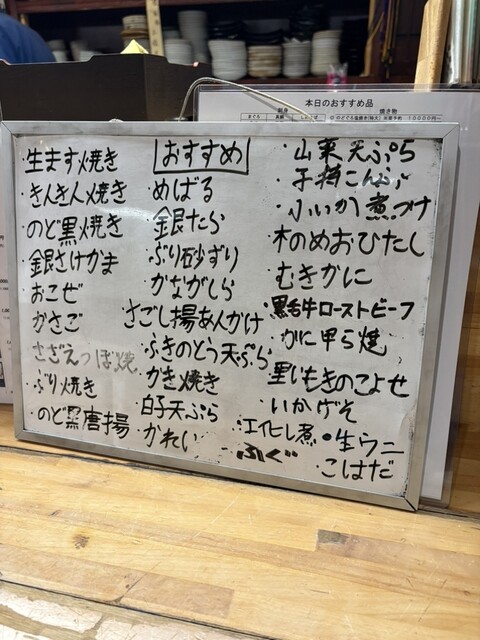 本日のおすすめ品
刺身
焼き物
おすすめ
・生ます焼き
・きんきん焼き
・のど黒焼き
・銀さけかま
・おこぜ
・かさご
・さざえつぼ焼
・ぶり焼き
・のど黒唐揚
・めばる
・銀たら
・ぶり砂ずり
・かながしら
・さごし揚あんかけ
・ふきのとう天ぷら
・かき焼き
・白子天ぷら
・かれい
・山菜天ぷら
・子持こんぶ
・小いか煮つけ
・木のめおひたし
・むきかに
・黒毛牛ローストビーフ
・かに甲ら焼
・里いもきのこよせ
・いかげそ
・江化し煮
・生ウニ
・ふぐ
・こはだ